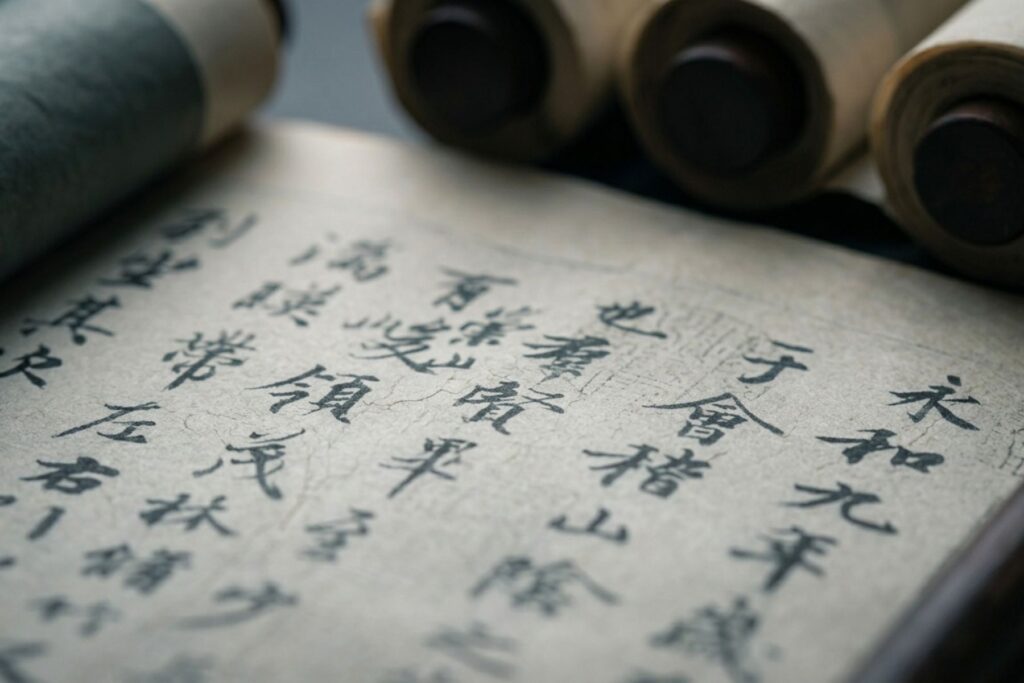 永和九年歲
于會稽山陰之
也羣賢畢至少
有崇山峻領茂林脩竹
湍暎帶左右引
列坐其次